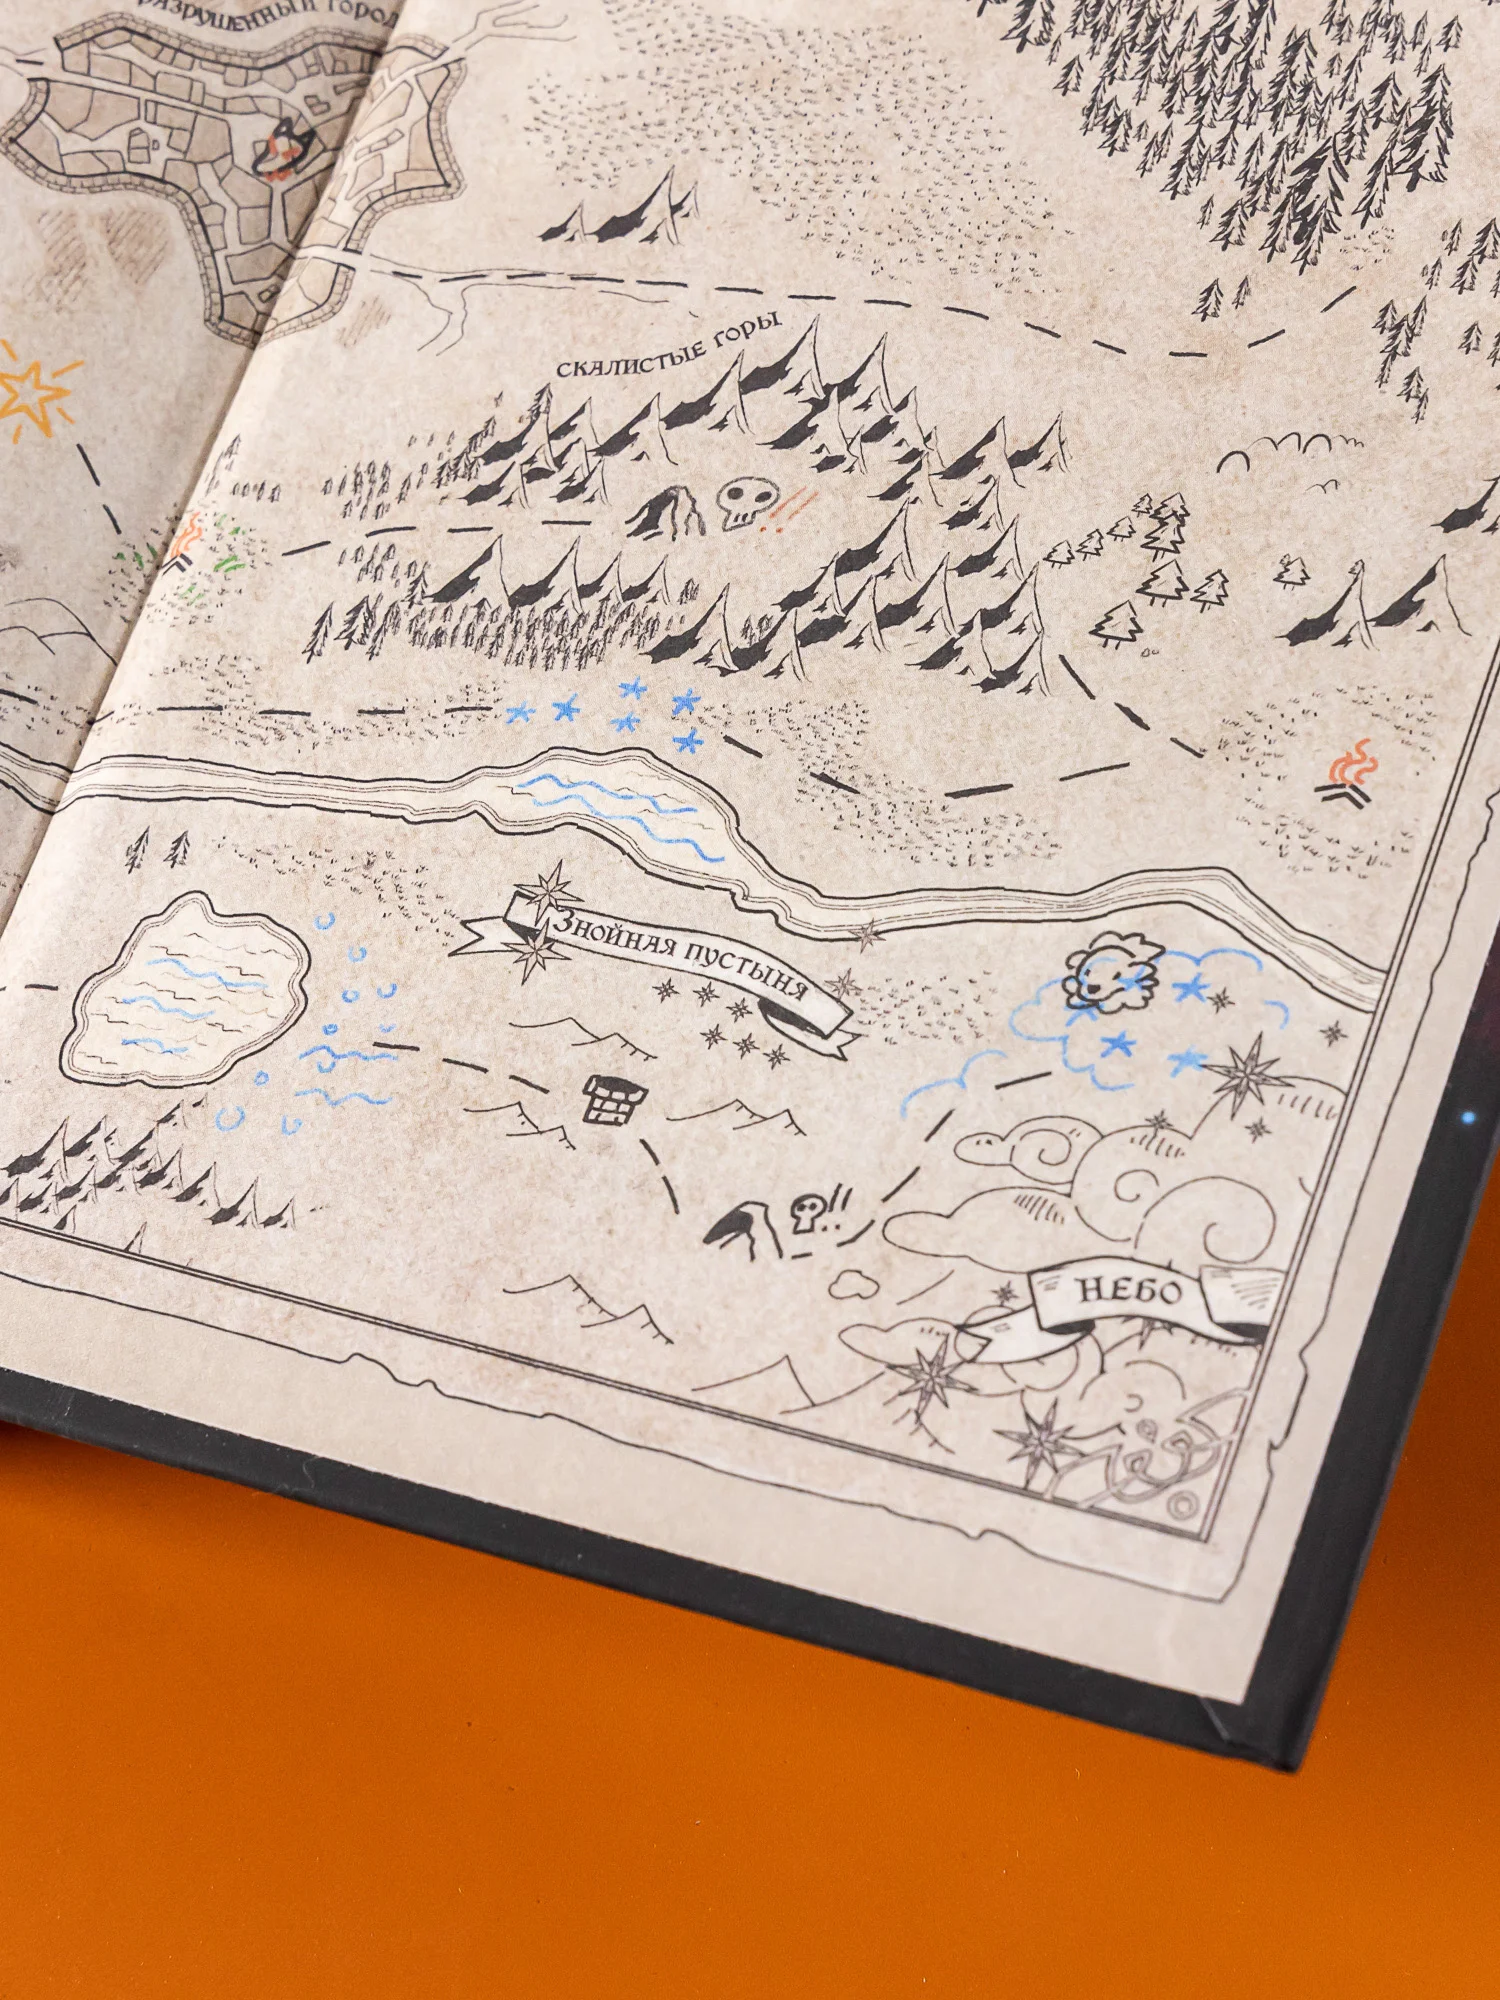 разрушенный город
скалистые горы
Знойная пустыня
НЕБО